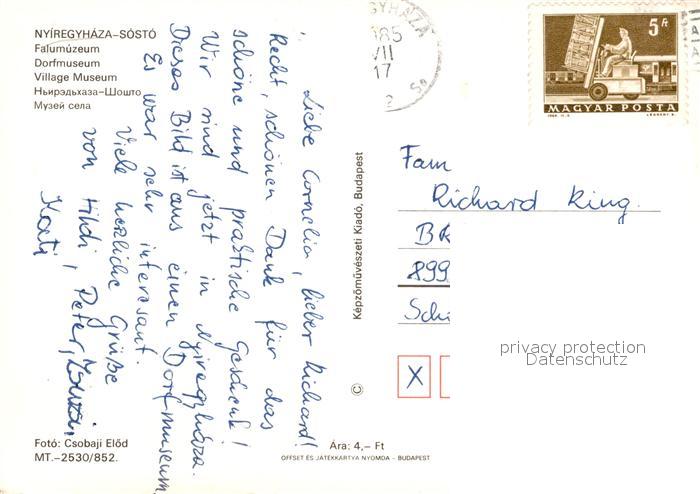 NYÍREGYHÁZA–SÓSTÓ
Falumúzeum
Dorfmuseum
Village Museum
Ньирэдьхаза–Шошто
Музей села
Liebe Cornelia, lieber Richard!
Recht schönen Dank für das
schöne und praktische Geschenk!
Wir sind jetzt in Nyiregyháza.
Dieses Bild ist aus einen Dorfmuseum,
Es war sehr interesant.
Viele herzliche Grüße
von Hildi, Peter,
Kati
Fotó: Csobaji Előd
MT.–2530/852.
Ára: 4,– Ft
OFFSET ÉS JÁTÉKKÁRTYA NYOMDA - BUDAPEST
© Képzőművészeti Kiadó, Budapest
GYHÁZA
985
VII
17
5 Ft
MAGYAR POSTA
Fam
Richard King.
BR
899
Sch
X
privacy protection
Datenschutz